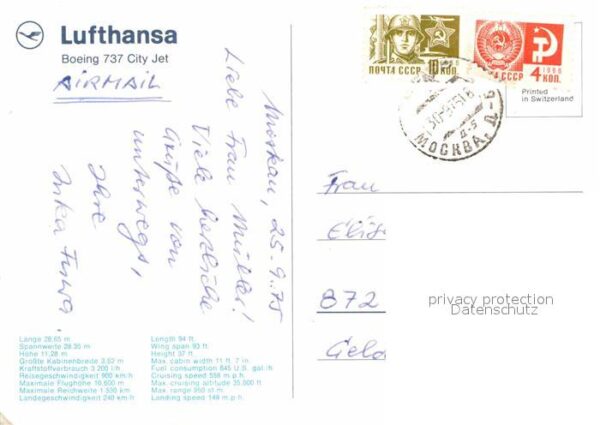 Lufthansa
Boeing 737 City Jet
AIRMAIL
Moskau, 25.9.75
Liebe Frau Müller!
Viele herzliche
Grüße von
unterwegs,
Ihre
Lange 28,65 m
Spannweite 28,35 m
Höhe 11,28 m
Größte Kabinenbreite 3,52 m
Kraftstoffverbrauch 3 200 l/h
Reisegeschwindigkeit 900 km/h
Maximale Flughöhe 10,600 m
Maximale Reichweite 1 530 km
Landegeschwindigkeit 240 km/h
Length 94 ft.
Wing span 93 ft.
Height 37 ft.
Max. cabin width 11 ft. 7 in.
Fuel consumption 845 U.S. gal./h
Cruising speed 559 m.p.h.
Max. cruising altitude 35,000 ft
Max. range 950 st.m.
Landing speed 149 m.p.h.
1966
ПОЧТА СССР 10 КОП.
1966
ПОЧТА СССР 4 КОП.
МОСКВА, Д-5
Д-5
Printed
in Switzerland
Frau
872
privacy protection
Datenschutz